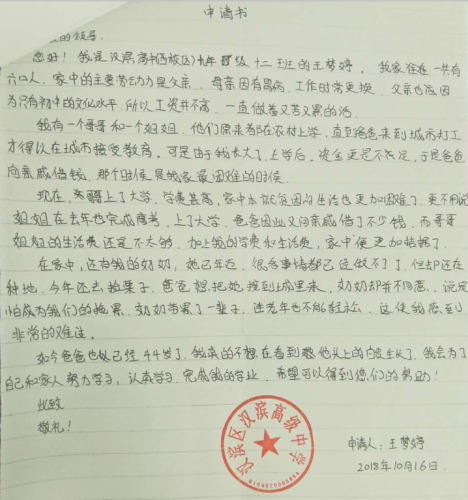 申请书
的领导:
您好!我是汉滨高中(西校区)高一年级十二班的王梦婷。我家住在一共有
六口人,家中的主要劳动力是父亲,母亲因有胃病,工作时常更换,父亲也因
为只有初中的文化水平,所以工资并不高,一直做着又苦又累的活。
我有一个哥哥和一个姐姐,他们原来都在农村上学,直至爸爸来到城市打工
才得以在城市接受教育。可是由于我长大了,上学后,资金更是不充足,于是爸爸
向亲戚借钱,那个时候是我家最困难的时候。
现在,哥哥上了大学,学费甚高,家中本就贫困的生活也更加困难了,更不用说
姐姐在去年也完成高考,上了大学,爸爸因此又向亲戚借了不少钱,而哥哥
姐姐的生活费还是不太够,加上我的学费和生活费,家中便更加拮据了。
在家中,还有我的奶奶,她已年迈,很多事情都已经做不了了,但却还在
种地,今年还去捡栗子,爸爸想把她接到城里来,奶奶却并不愿意,说是
怕成为我们的拖累,奶奶劳累了一辈子,连老年也不能轻松,这使我感到
非常的难过。
如今爸爸也已经44岁了,我真的不想在看到他头上的白发生长了,我会为了
自己和家人努力学习,认真学习,完成我的学业,希望可以得到您们的帮助!
此致
敬礼!
汉滨区汉滨高级中学
申请人:王梦婷
2018年10月16日.